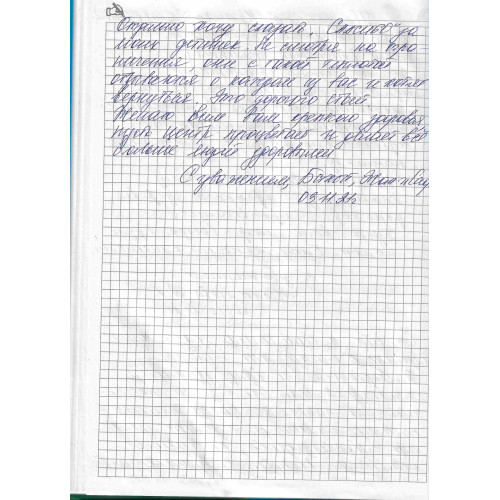 Отдельно хочу сказать "Спасибо" за
моих детишек. Не смотря на огра-
ничения, они с такой теплотой
отзываются о каждом из вас и хотят
вернуться. Это дорогого стоит.
Желаю всем Вам крепкого здоровья,
пусть центр процветает и делает всё
больше людей здоровыми
С уважением,
03.11.21г